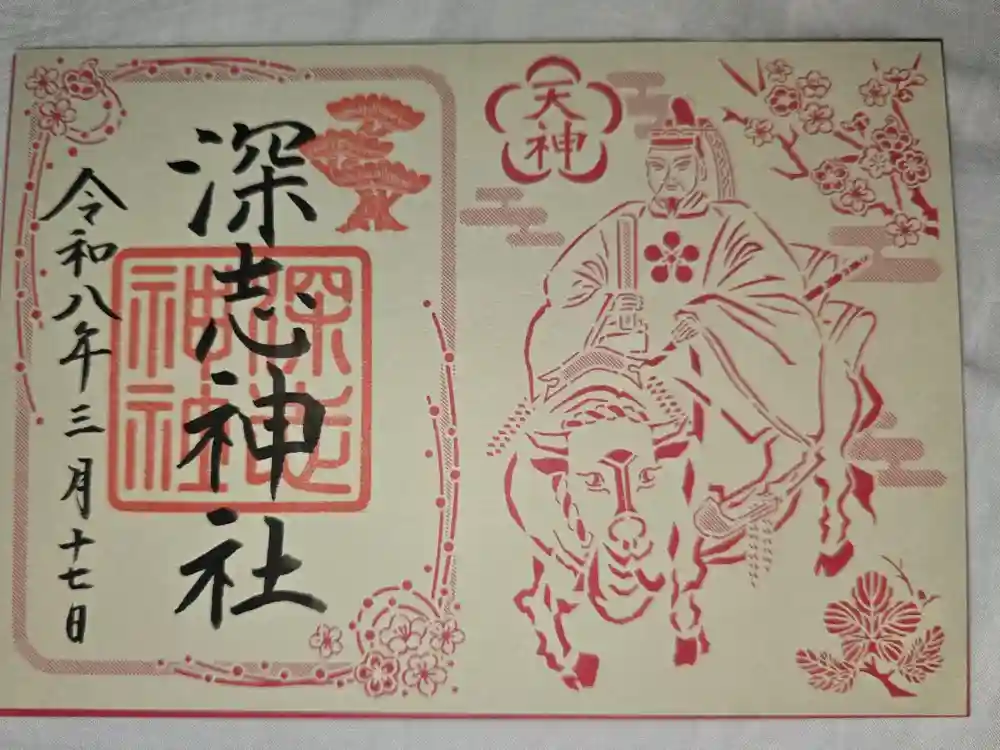 天神
深志神社
深志
神社
令和八年三月十七日